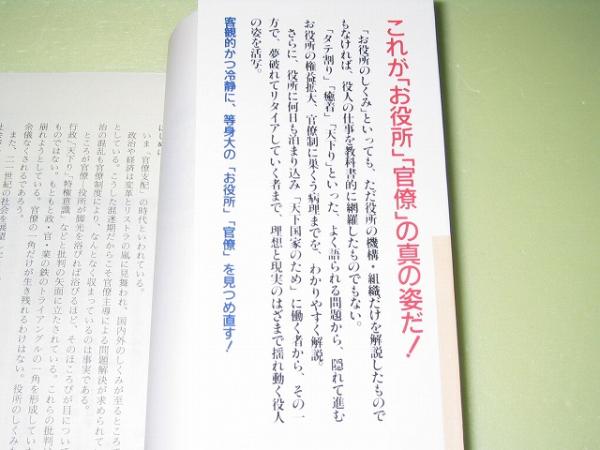 これが「お役所」「官僚」の真の姿だ!
「お役所のしくみ」といっても、ただ役所の機構・組織だけを解説したもので
もなければ、役人の仕事を教科書的に網羅したものでもない。
「タテ割り」「癒着」「天下り」といった、よく語られる問題から、隠れて進む
お役所の権益拡大、官僚制に巣くう病理までを、わかりやすく解説。
さらに、役所に何日も泊まり込み「天下国家のため」に働く者から、その一
方で、夢破れてリタイアしていく者まで、理想と現実のはざまで揺れ動く役人
の姿を活写。
客観的かつ冷静に、等身大の「お役所」「官僚」を見つめ直す!
はじめに
いま「官僚支配」の時代といわれている。
政治や経済は変革とリストラの風に見舞われ、国内外のしくみが至るところで
としている。こうした混迷期だからこそ官僚主導による問題解決が求められてい
治の混乱も官僚制度により、なんとなく収まっているのは事実である。
ところが官僚―役所が脚光を浴びれば浴びるほど、そのほころびが目につい
行政」「天下り」「特権意識」などと批判の矢面に立たされている。これらの批判は
ものではない。もともと政・官・業の鉄のトライアングルの一角を形成してい
崩れようとしている。官僚の一角だけが生き残れるわけはない。役所のしくみも
余儀なくされるであろう。
また、二一世紀の社会を展望